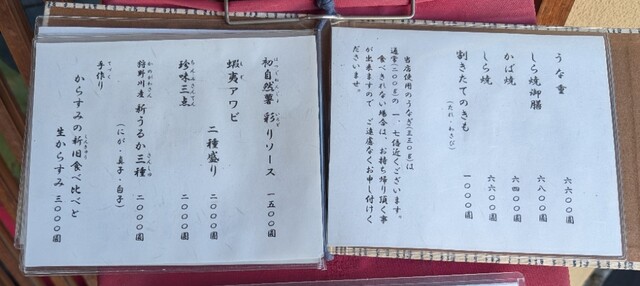 うな重 六六〇〇圓
しら焼御膳 六八〇〇圓
かば焼 六四〇〇圓
しら焼 六六〇〇圓
割きたてのきも 一〇〇〇圓
(たれ・わさび)
当店使用のうなぎ(三三〇g)は
通常(二〇〇g)の一．七倍近くございます。
食べきれない場合は、お持ち帰り頂く事
が出来ますので、ご遠慮なくお申し付けく
ださいませ。
初自然薯 彩りソース 一五〇〇圓
蝦夷アワビ 二種盛り 二〇〇〇圓
珍味三点 二〇〇〇圓
狩野川産 新うるか三種 二〇〇〇圓
(にが・真子・白子)
手作り
からすみの新旧食べ比べと
生からすみ 三〇〇〇圓